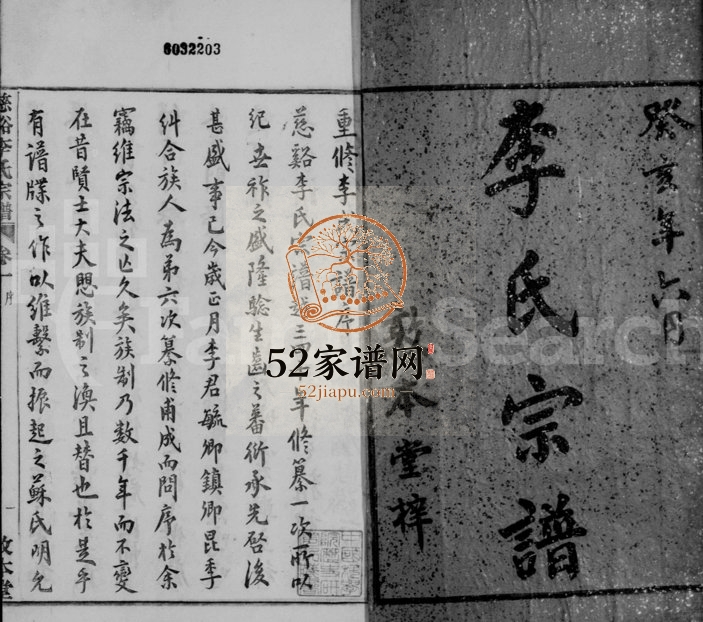 6032203
癸亥年六月
李氏宗譜
敦本堂梓
重修李氏宗譜序
慈谿李氏宗譜越三四十年修纂一次所以
紀世祚之盛隆驗生齒之蕃衍承先啓後
甚盛事已今歲正月李君毓卿鎮卿昆季
糾合族人為弟六次纂修甫成而問序於余
竊維宗法之亾久矣族制乃數千年而不變
在昔賢士大夫愳族制之渙且替也於是乎
有譜牒之作以維繫而振起之蘇氏明允
慈谿李氏宗譜
卷一
序
一
敦本堂
52家谱网
52jiapu.com
Search